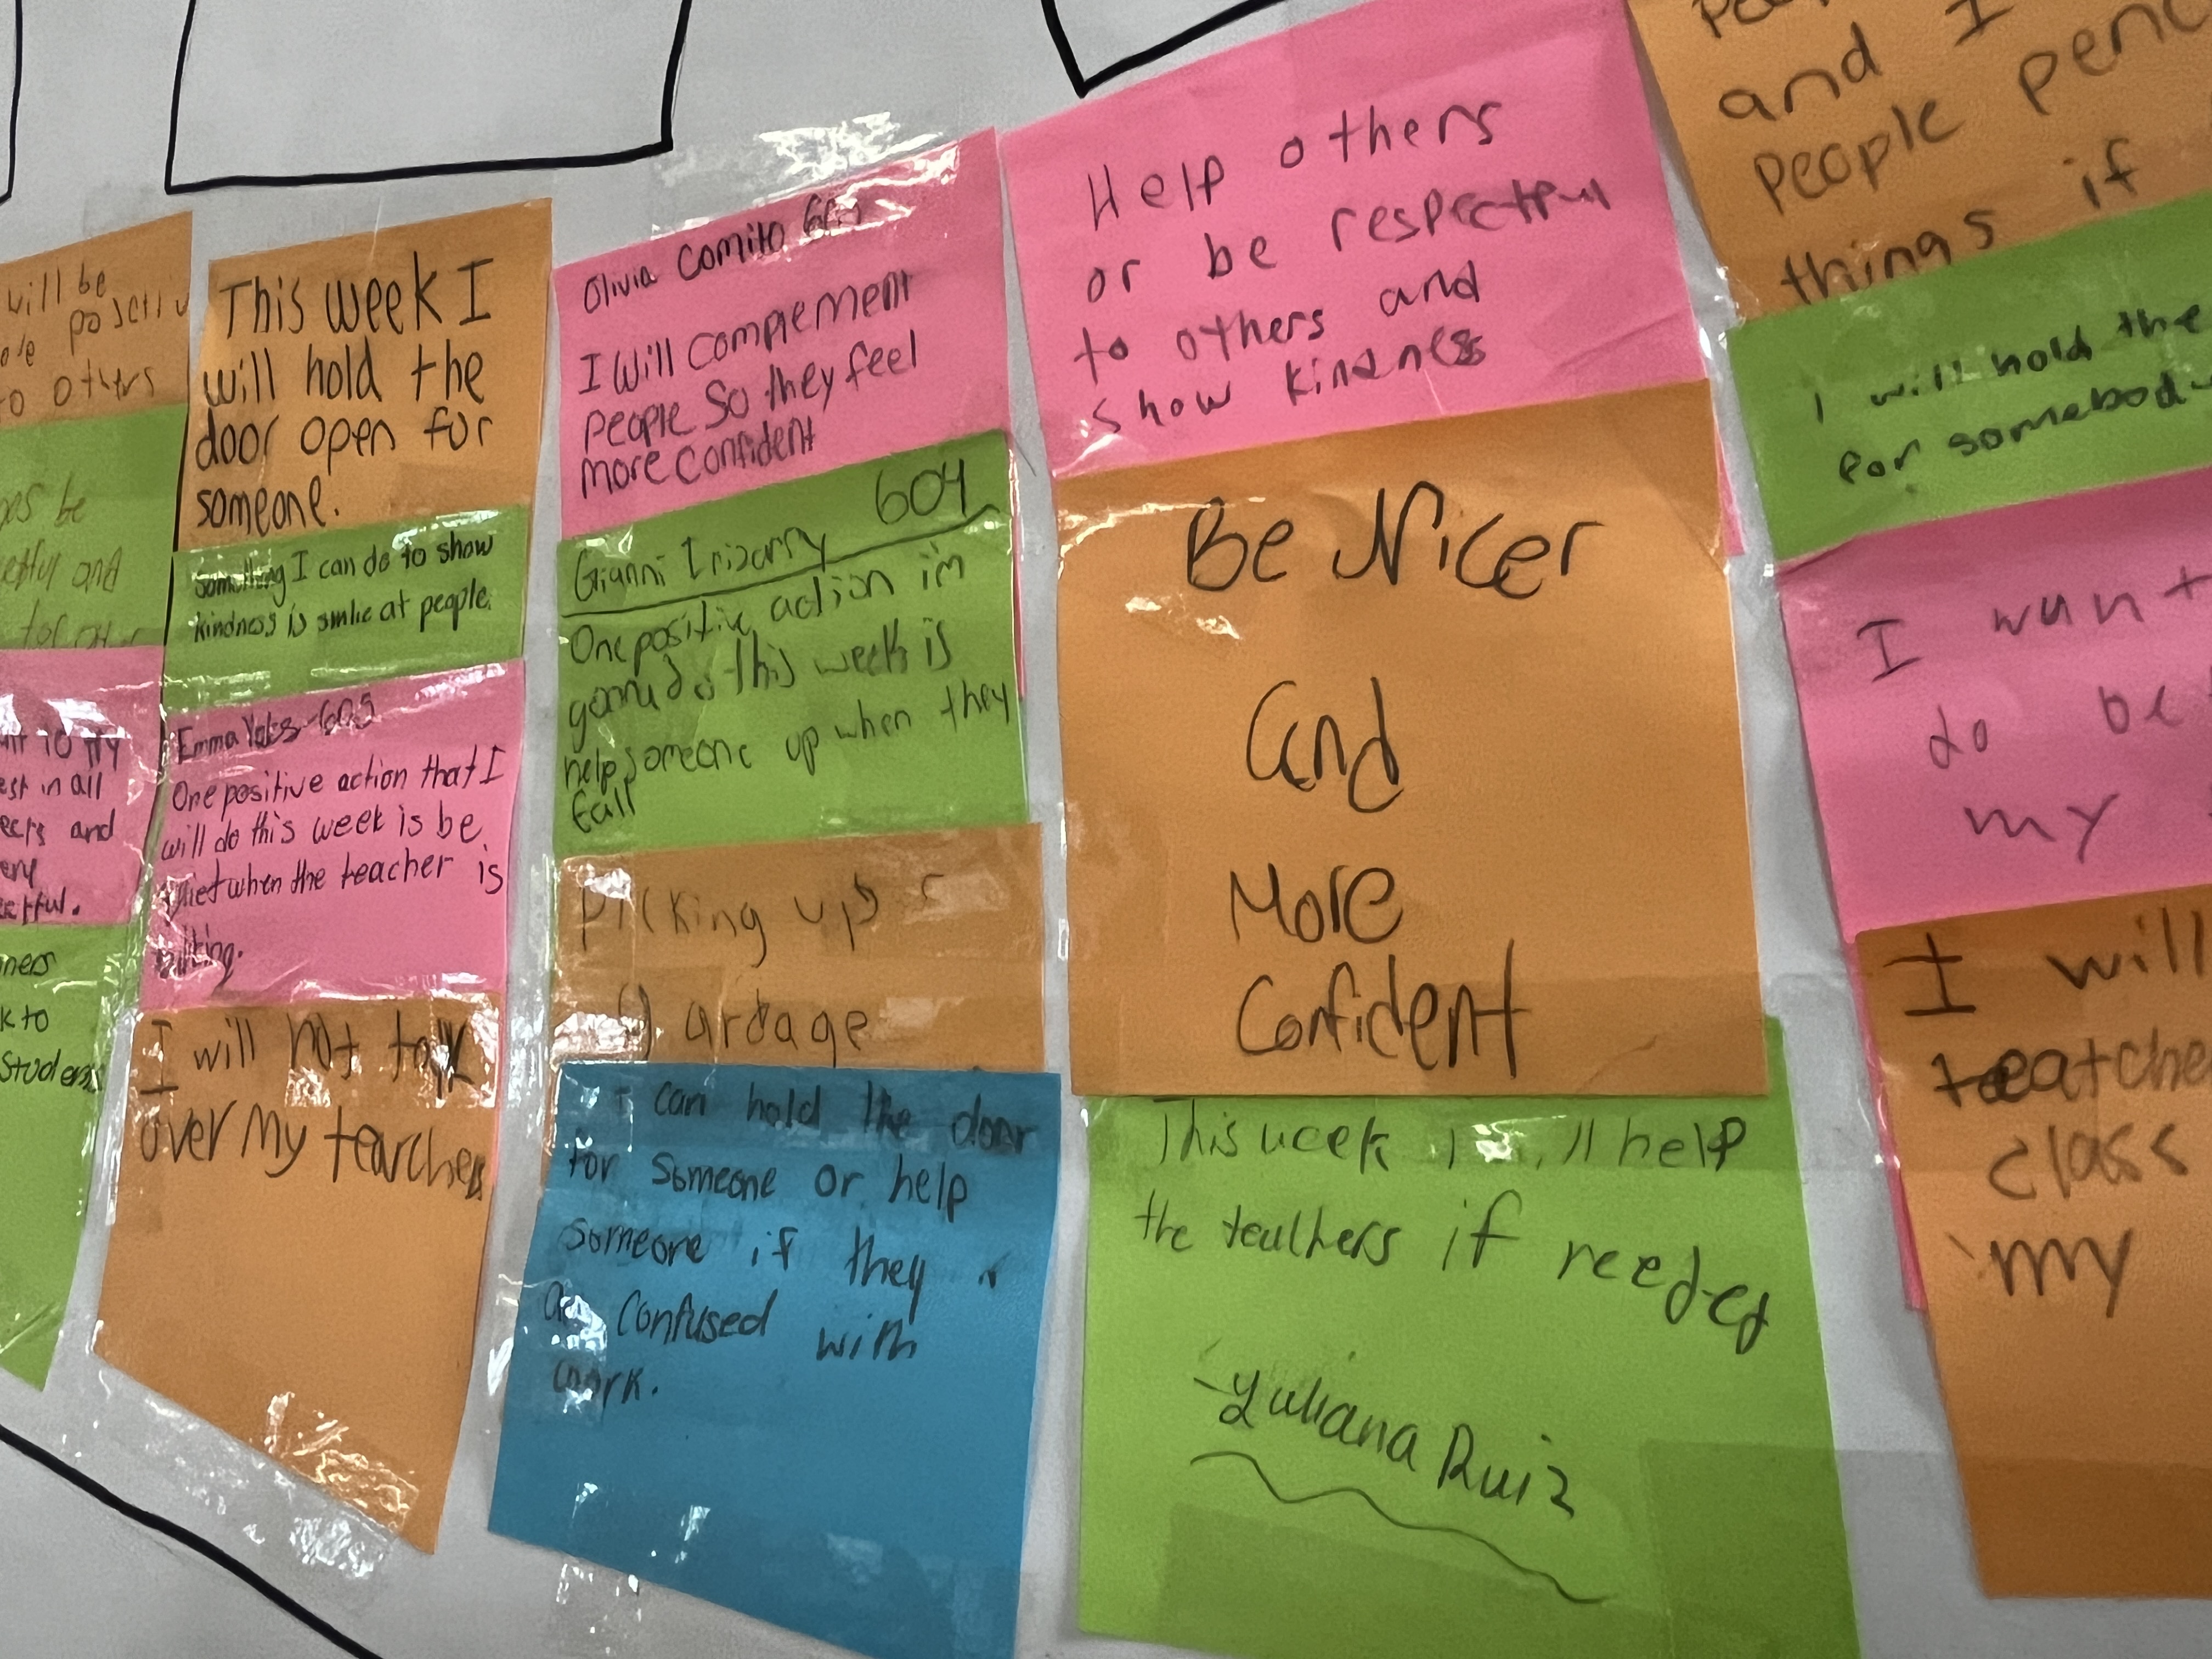 will be
to others
be
and
to try
in all
and
to
This week I
will hold the
door open for
someone.
Something I can do to show
kindness is smlie at people.
Emma 605
One positive action that I
will do this week is be
quiet when the teacher is
talking.
I will not talk
over my
Olivia Comito
I will complement
people so they feel
more confident
604
Gianni Irizarry
One positive action im
gonna do this week is
help someone up when they
fall
picking up
I can hold the door
for someone or help
someone if they
are confused with
work.
Help others
or be respectful
to others and
show kindness
Be Nicer
and
More
Confident
This week I will help
the teachers if needed
-Yuliana Ruiz
and I
people
things if
I will hold the
for
I wunt
do
my
I will
class
my